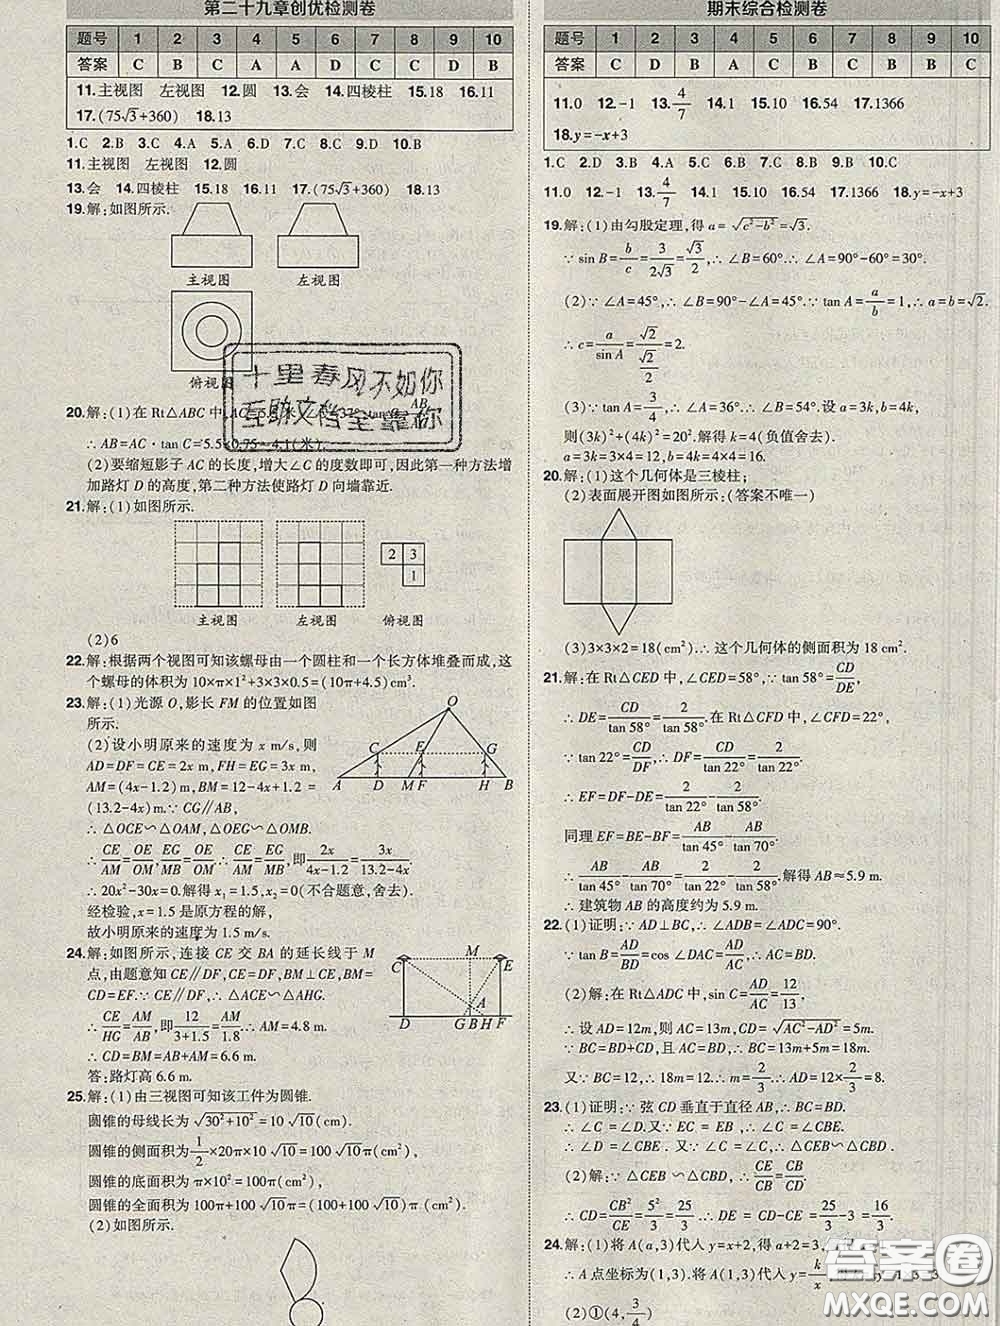 第二十九章创优检测卷
题号 1 2 3 4 5 6 7 8 9 10
答案 C B C A A D C C D B
11.主视图 左视图 12.圆 13.会 14.四棱柱 15.18 16.11
17.(75√3+360) 18.13
1.C 2.B 3.C 4.A 5.A 6.D 7.C 8.C 9.D 10.B
11.主视图 左视图 12.圆
13.会 14.四棱柱 15.18 16.11 17.(75√3+360) 18.13
19.解:如图所示.
主视图 左视图
俯视图
20.解:(1)在 Rt△ABC 中,
∴ AB=AC·tan C=5.5×0.75≈4.1(米).
(2)要缩短影子 AC 的长度,增大∠C 的度数即可,因此第一种方法增
加路灯 D 的高度,第二种方法使路灯 D 向墙靠近.
21.解:(1)如图所示.
2 3
1
主视图 左视图 俯视图
(2)6
22.解:根据两个视图可知该螺母由一个圆柱和一个长方体堆叠而成,这
个螺母的体积为 10×π×1²+3×3×0.5=(10π+4.5) cm³.
23.解:(1)光源 O,影长 FM 的位置如图
所示.
(2)设小明原来的速度为 x m/s,则
AD=DF=CE=2x m,FH=EG=3x m,
AM=(4x-1.2) m,BM=12-4x+1.2=
(13.2-4x) m.∵ CG∥AB,
∴ △OCE∽△OAM,△OEG∽△OMB.
∴ CE/AM=OE/OM,EG/MB=OE/OM.∴ CE/AM=EG/MB,即2x/(4x-1.2)=3x/(13.2-4x).
∴ 20x²-30x=0.解得 x₁=1.5,x₂=0(不合题意,舍去).
经检验,x=1.5 是原方程的解,
故小明原来的速度为 1.5 m/s.
O
C E G
A D M F H B
24.解:如图所示,连接 CE 交 BA 的延长线于 M
点,由题意知 CE∥DF,CE=DF,BM⊥CE,BM=
CD=EF.∵ CE∥DF,∴ △ACE∽△AHG.
∴ CE/HG=AM/AB,即12/(3+1.5)=AM/1.8.∴ AM=4.8 m.
∴ CD=BM=AB+AM=6.6 m.
答:路灯高 6.6 m.
M
C E
A
D G B H F
25.解:(1)由三视图可知该工件为圆锥.
圆锥的母线长为 √(30²+10²)=10√10(cm).
圆锥的侧面积为 1/2×20π×10√10=100√10π(cm²).
圆锥的底面积为 π×10²=100π(cm²).
圆锥的全面积为 100π+100√10π=(100+100√10)π(cm²).
(2)如图所示.
期末综合检测卷
题号 1 2 3 4 5 6 7 8 9 10
答案 C D B A B C B B B C
11.0 12.-1 13.4/7 14.1 15.10 16.54 17.1366
18.y=-x+3
1.C 2.D 3.B 4.A 5.B 6.C 7.B 8.B 9.B 10.C
11.0 12.-1 13.4/7 14.1 15.10 16.54 17.1366 18.y=-x+3
19.解:(1)由勾股定理,得 a=√(c²-b²)=√3.
∵ sin B=b/c=3/(2√3)=√3/2,∴ ∠B=60°.∴ ∠A=90°-60°=30°.
(2)∵ ∠A=45°,∴ ∠B=90°-∠A=45°.∵ tan A=a/b=1,∴ a=b=√2.
∴ c=a/sin A=√2/(√2/2)=2.
(3)∵ tan A=3/4,∴ ∠A=36°.∴ ∠B=54°.设 a=3k,b=4k,
则(3k)²+(4k)²=20².解得 k=4(负值舍去).
∴ a=3k=3×4=12,b=4k=4×4=16.
20.解:(1)这个几何体是三棱柱;
(2)表面展开图如图所示:(答案不唯一)
(3)3×3×2=18(cm²).∴ 这个几何体的侧面积为 18 cm².
21.解:在 Rt△CED 中,∠CED=58°,∵ tan 58°=CD/DE,
∴ DE=CD/tan 58°=2/tan 58°.在 Rt△CFD 中,∠CFD=22°,
∵ tan 22°=CD/DF,∴ DF=CD/tan 22°=2/tan 22°.
∴ EF=DF-DE=2/tan 22°-2/tan 58°.
同理 EF=BE-BF=AB/tan 45°-AB/tan 70°.
∴ AB/tan 45°-AB/tan 70°=2/tan 22°-2/tan 58°.解得 AB≈5.9 m.
∴ 建筑物 AB 的高度约为 5.9 m.
22.(1)证明:∵ AD⊥BC,∴ ∠ADB=∠ADC=90°.
∵ tan B=AD/BD=cos ∠DAC=AD/AC,∴ AC=BD.
(2)解:在 Rt△ADC 中,sin C=AD/AC=12/13,
∴ 设 AD=12m,则 AC=13m,CD=√(AC²-AD²)=5m.
∵ BC=BD+CD,且 AC=BD,∴ BC=13m+5m=18m.
又∵ BC=12,∴ 18m=12.∴ m=2/3.∴ AD=12×2/3=8.
23.(1)证明:∵ 弦 CD 垂直于直径 AB,∴ BC=BD.
∴ ∠C=∠D.又∵ EC=EB,∴ ∠C=∠CBE.
∴ ∠D=∠CBE.又∵ ∠C=∠C,∴ △CEB∽△CBD.
(2)解:∵ △CEB∽△CBD,∴ CE/CB=CB/CD.
∴ CD=CB²/CE=5²/3=25/3.∴ DE=CD-CE=25/3-3=16/3.
24.解:(1)将 A(a,3)代入 y=x+2,得 a+2=3,
∴ A 点坐标为(1,3),将 A(1,3)代入 y=k/x,
(2)①(4,3/4)
十里春风不如你
互助文档全靠称
答案圈
MXQE.COM